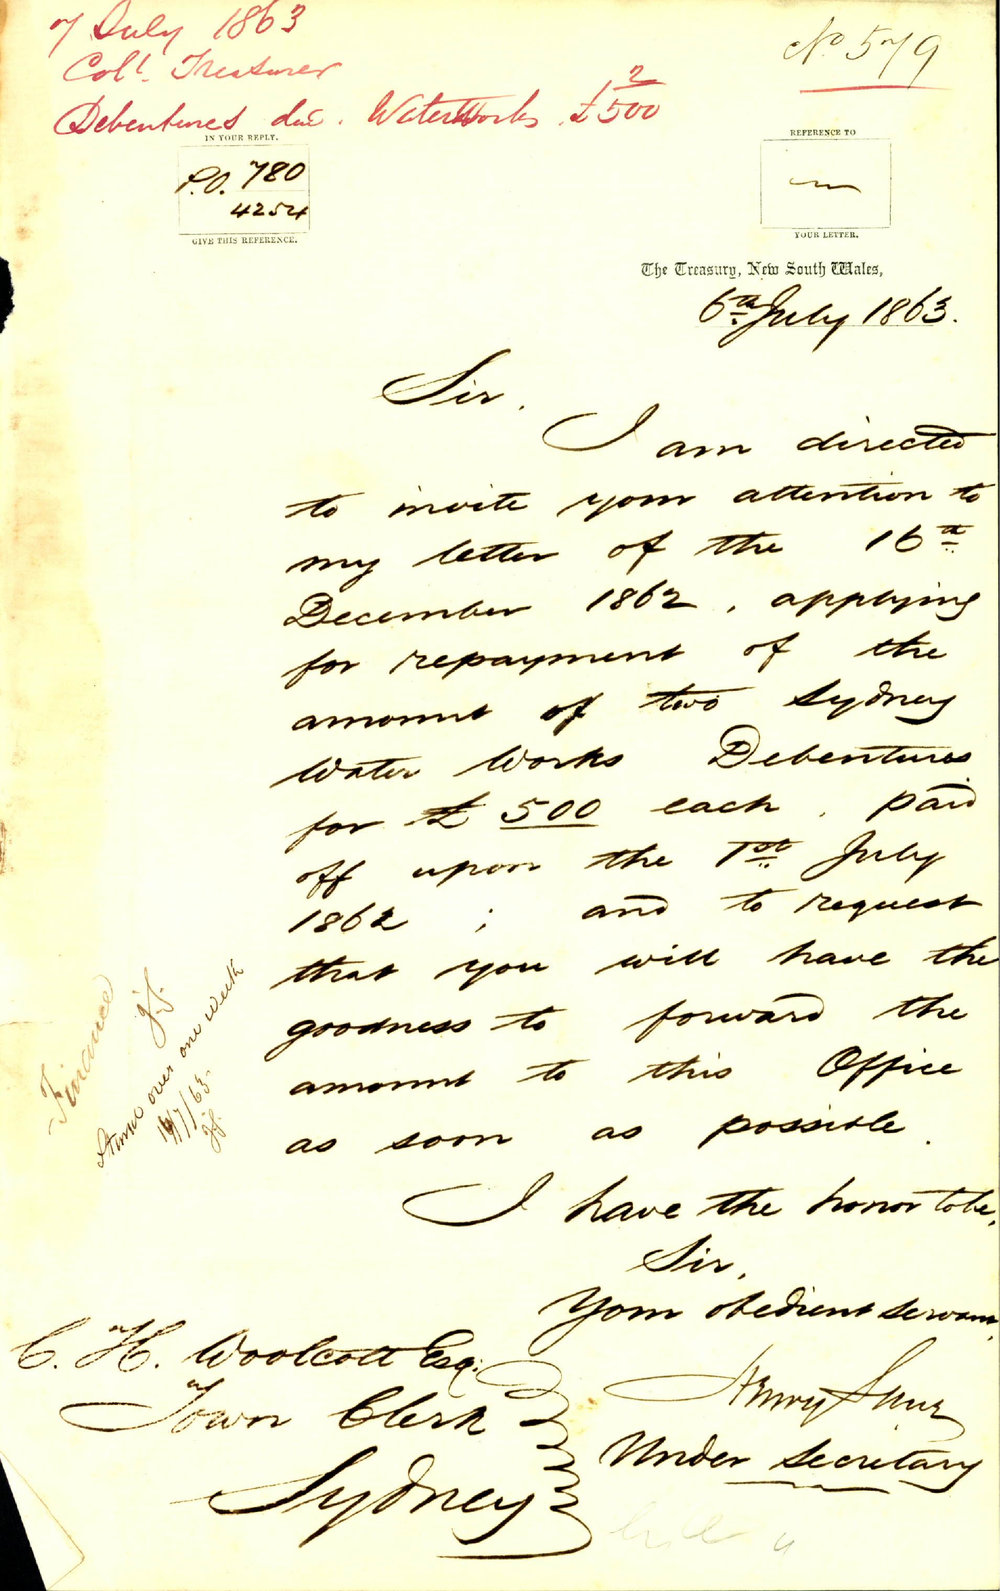 7 July 1863
No 579
Coll. Treasurer
Debentures due. Waterworks. £ 2/500
IN YOUR REPLY.
P.O. 780
4254
GIVE THIS REFERENCE.
REFERENCE TO
YOUR LETTER.
The Treasury, New South Wales,
6th July 1863.
Sir,
I am directed
to invite your attention to
my letter of the 16th
December 1862, applying
for repayment of the
amount of two Sydney
Water Works Debentures
for £500 each, paid
off upon the 1st July
1862; and to request
that you will have the
goodness to forward the
amount to this Office
as soon as possible.
I have the honor to be,
Sir,
Your obedient servant,
Henry Lane
Under Secretary
C. H. Woolcott Esq.
Town Clerk
Sydney
Finance
over one week
/7/63